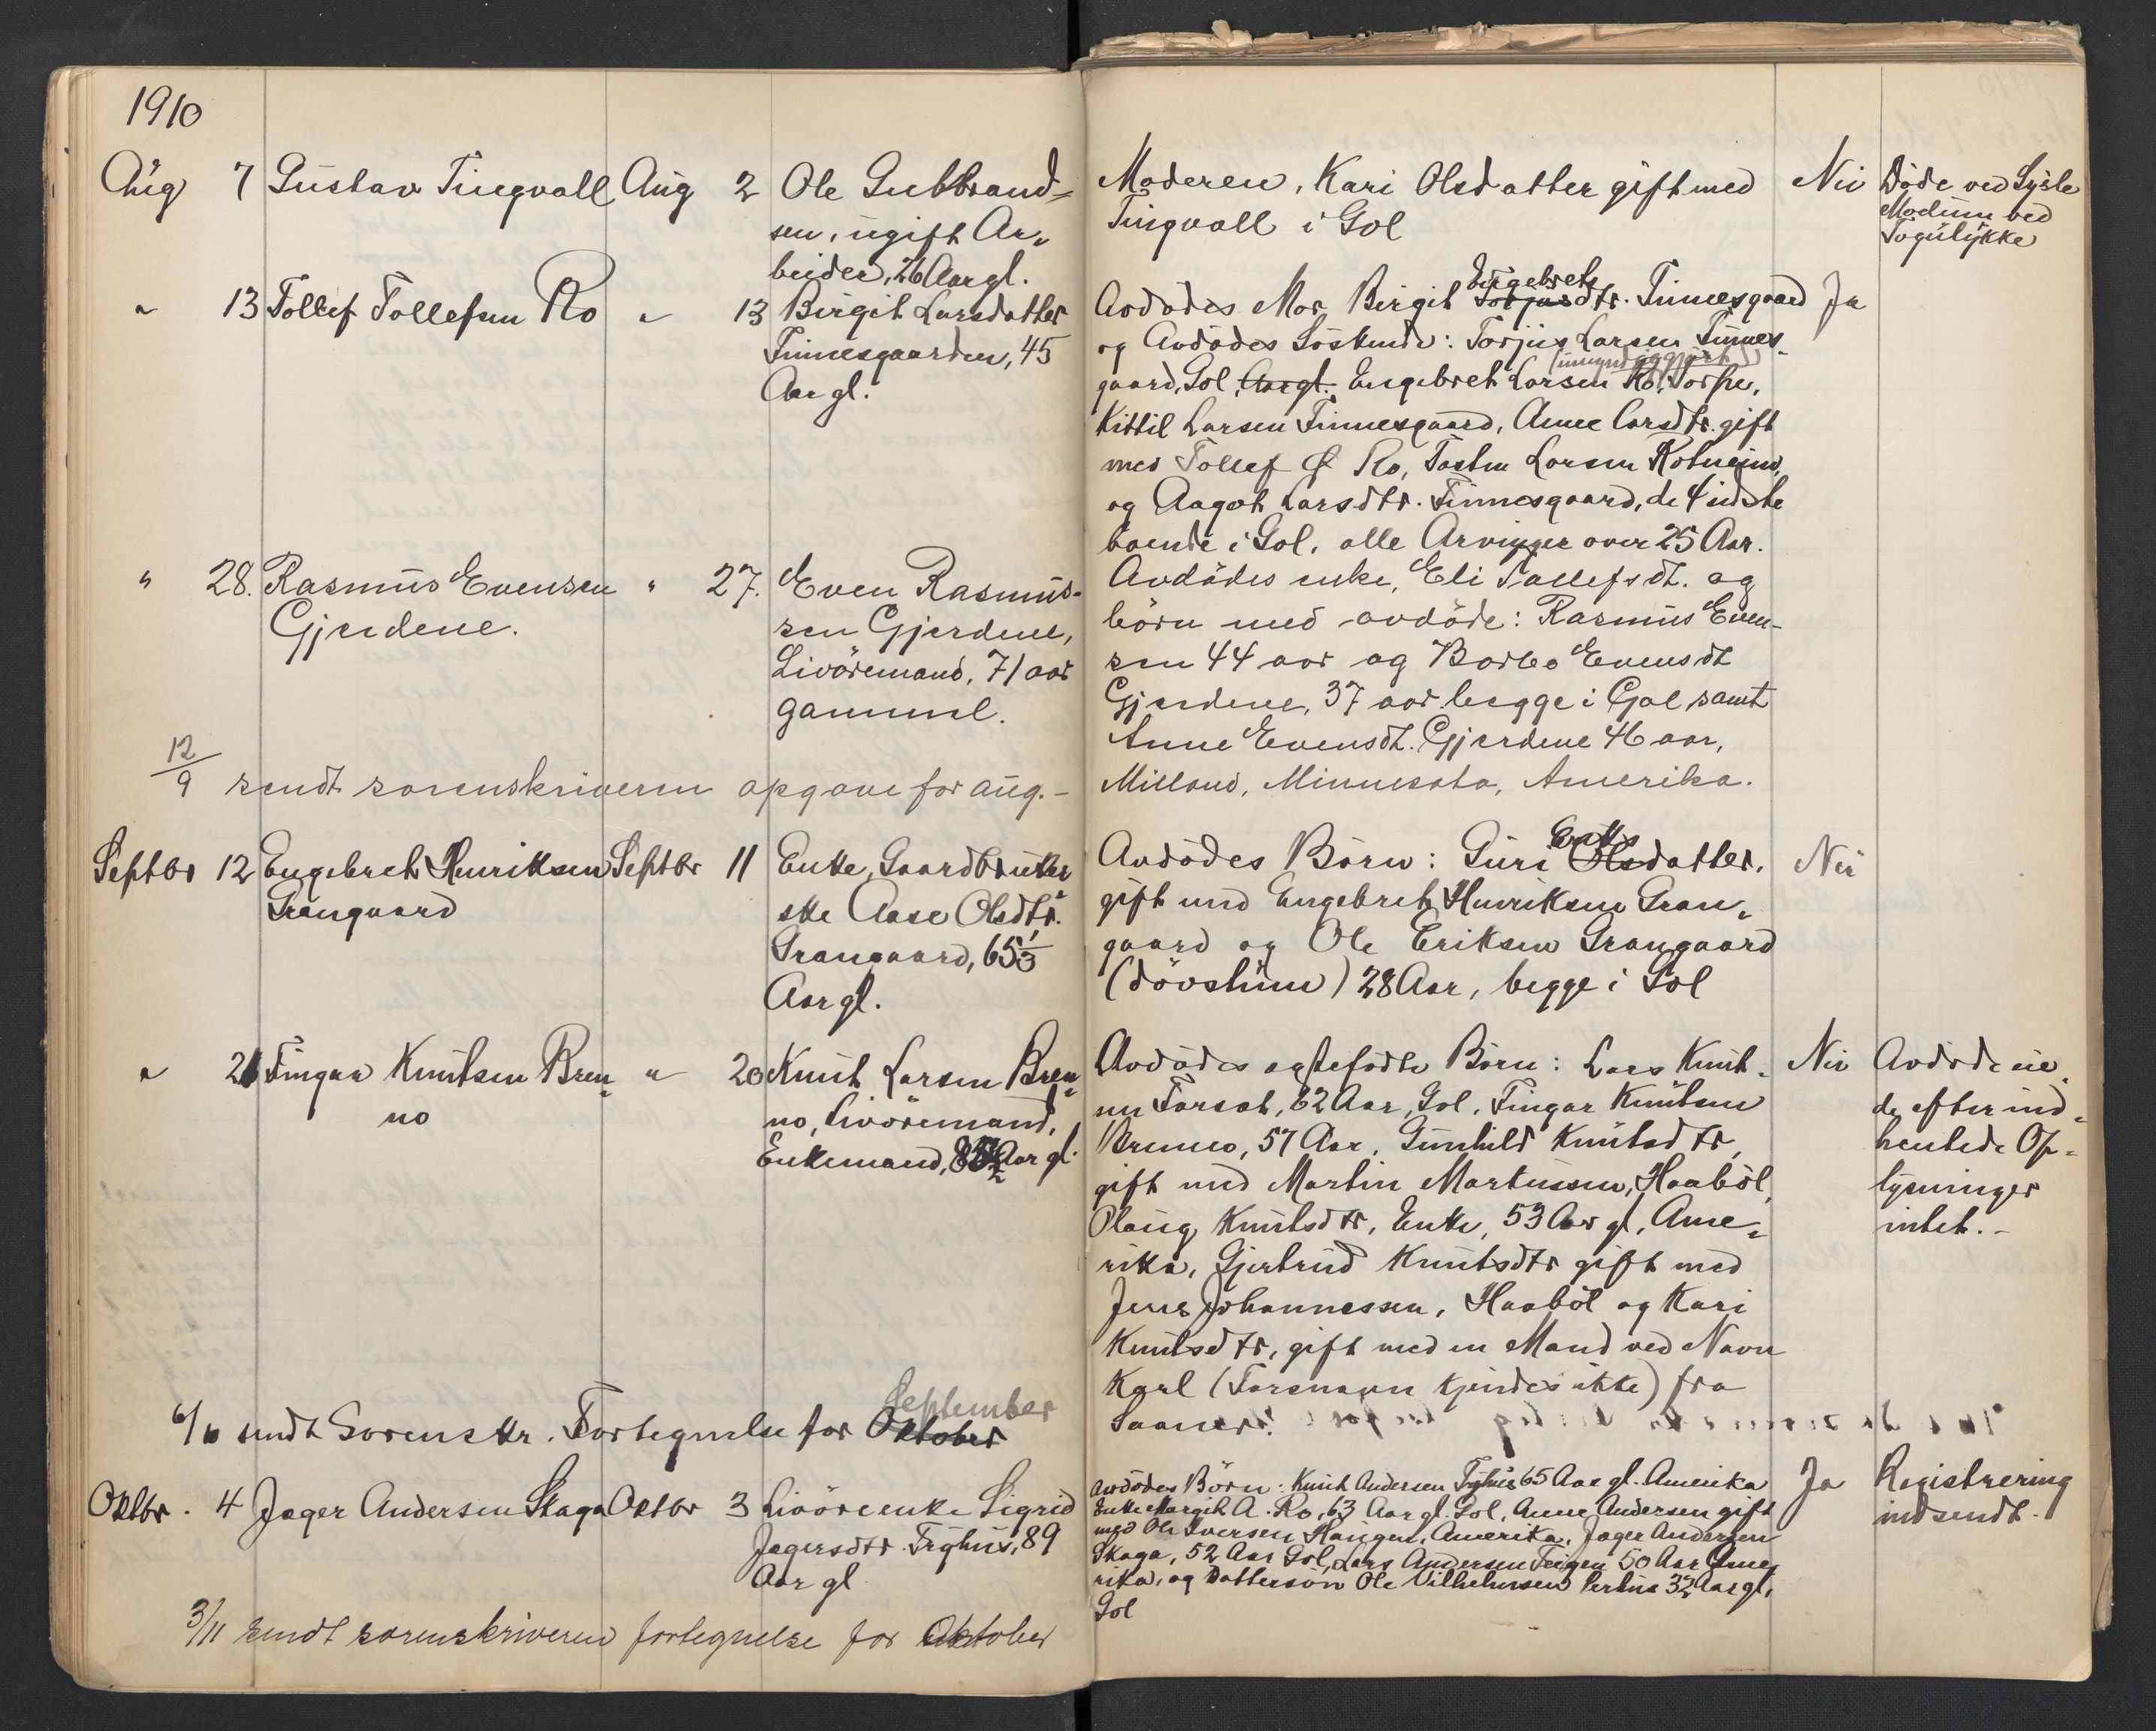 1910
Aug 7 Gustav Tingvall Aug 2 Ole Gulbrand=
sen, ugift Ar„
beider, 26 Aar gl.
Moderen, Kari Olsdatter gift med
Tingvall i Gol
Nei
Døde ved
Modum ved
„ 13 Tollef Tollefsen Ro „ 13 Birgit Larsdatter
Finnesgaarden, 45
Aar gl.
Engebrets
Avdødes Mor Birgit Torjusdtr. Finnesgaard
og Avdødes Søskende: Torjus Larsen Finnes-
(umyndiggjort)
gaard, Gol, Aar gl. Engebret Larsen Ro, Torpe,
Kittil Larsen Finnesgaard, Anne Larsdtr. gift
med Tollef Ro, Larsen
og Aagot Larsdtr. Finnesgaard, de 4 sidste
boende i Gol, alle Arvinger over 25 Aar.
Ja
„ 28. Rasmus Evensen „ 27. Even Rasmus-
Gjerdene.
sen Gjerdene,
Livøremand, 71 aar
gammel.
Avdødes enke, Eli Tollefsdt. og
børn med avdøde: Rasmus Even-
sen 44 aar og Barbo Evensdt
Gjerdene, 37 aar begge i Gol samt
Anne Evensdt. Gjerdene 46 aar,
Milland, Minnesota, Amerika.
12/9 sendt sorenskriveren opgave for aug. -
Septbr 12 Engebret Henriksen Septbr 11 Enke, Gaardbruker
Grangaard
ske Aase Olsdtr.
Grangaard, 65 1/3
Aar gl.
Eriks
Avdødes Børn: Guri Olsdatter,
gift med Engebret Henriksen Gran„
gaard og Ole Eriksen Grangaard
(døvstum) 28 Aar, begge i Gol
Nei
„ 21 Fingar Knutsen Bren„ „ 20 Knut Larsen Bren„
no
no, Livøremand,
Enkemand, Aar gl.
Avdødes egtefødte Børn: Lars Knut-
sen, 62 Aar, Gol, Fingar Knutsen
Brenno, 57 Aar, Gunhild Knutsdtr,
gift med Martin Martinsen, Haabøl,
Olaug Knutsdtr, Enke, 53 Aar gl, Ame„
rika, Gjertrud Knutsdtr gift med
Jens Johannessen, Haabøl og Kari
Knutsdtr, gift med en Mand ved Navn
Karl (Farsnavn kjendes ikke) fra
Saaner.
Nei
Avdøde eie„
de efter ind„
hentede Op„
lysninger
intet. -
September
6/10 sendt Sorenskr. Fortegnelse for Oktober
Oktbr. 4 Jager Andersen Skaga Oktbr 3 Livøreenke Sigrid
Jagersdtr. Trøhus, 89
Aar gl
Avdødes Børn: Knut Andersen 65 Aar gl. Amerika
Enke Margit A. Ro, 63 Aar gl. Gol, Anne Andersen gift
med Ole Iversen Haugen, Amerika, Jager Andersen
Skaga, 52 Aar Gol, Lars Andersen Teigen 50 Aar Ame„
rika, og Dattersøn Ole Vilhelmsen 32 Aar gl,
Gol
Ja
Registrering
indsendt.
3/11 sendt sorenskriveren fortegnelse for Oktober